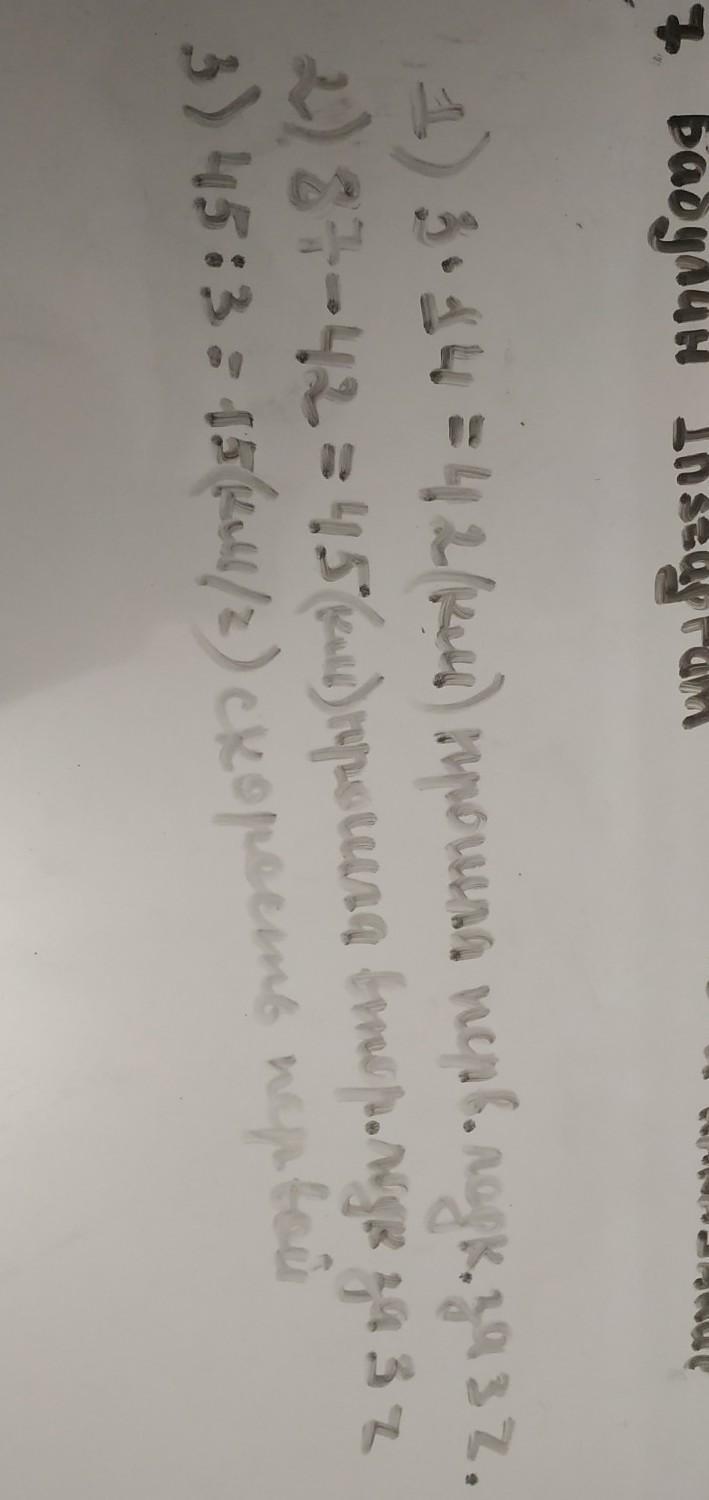 7 Бадулин Inszagram
1) 3·14=42(км) прошла перв. лодк. за 3 г.
2) 87-42=45(км) прошла втор. лудк за 3 г
3) 45:3=15(км/г) скорость первой